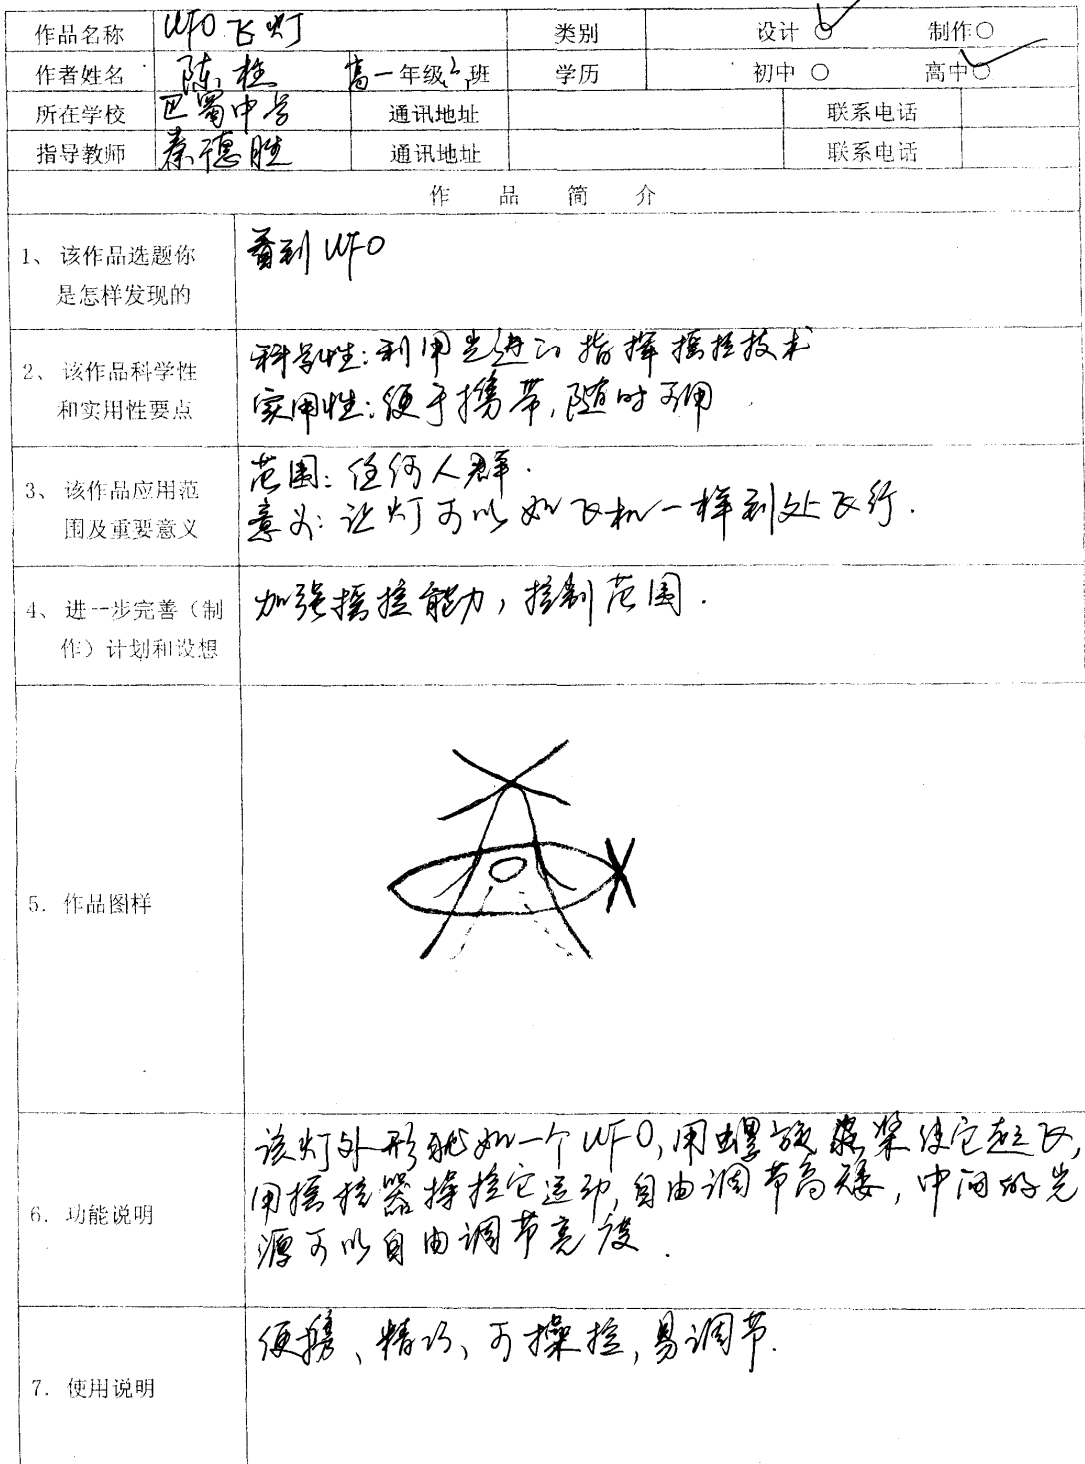 作品名称 UFO飞灯 类别 设计○ 制作○
作者姓名 陈桂 高一年级2班 学历 初中○ 高中○
所在学校 巴蜀中学 通讯地址 联系电话
指导教师 秦德胜 通讯地址 联系电话
作品简介
1、该作品选题你
是怎样发现的
看到UFO
2、该作品科学性
和实用性要点
科学性：利用先进的指挥摇控技术
实用性：便于携带，随时可用．
3、该作品应用范
围及重要意义
范围：任何人群．
意义：让灯可以如飞机一样到处飞行．
4、进一步完善（制
作）计划和设想
加强摇控能力，控制范围．
5．作品图样
6．功能说明
该灯外形貌如一个UFO，用螺旋桨使它起飞，
用摇控器操控它运动，自由调节高矮，中间的光
源可以自由调节亮度．
7．使用说明
便携、精巧、可操控，易调节．